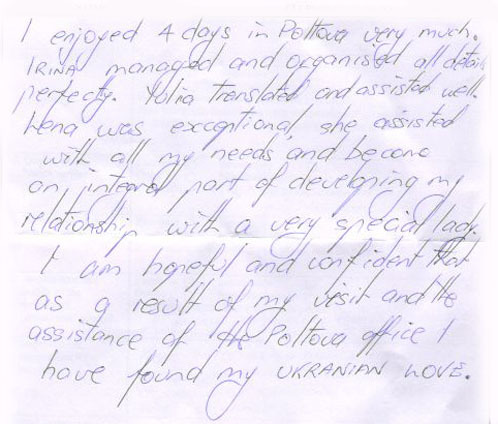 I enjoyed 4 days in Poltova very much.
IRINA managed and organised all details
perfectly. Yulia translated and assisted well.
Lena was exceptional, she assisted
with all my needs, and became
an integral part of developing my
relationship with a very special lady.
I am hopeful and confident that
as a result of my visit and the
assistance of the Poltova office I
have found my UKRANIAN LOVE.